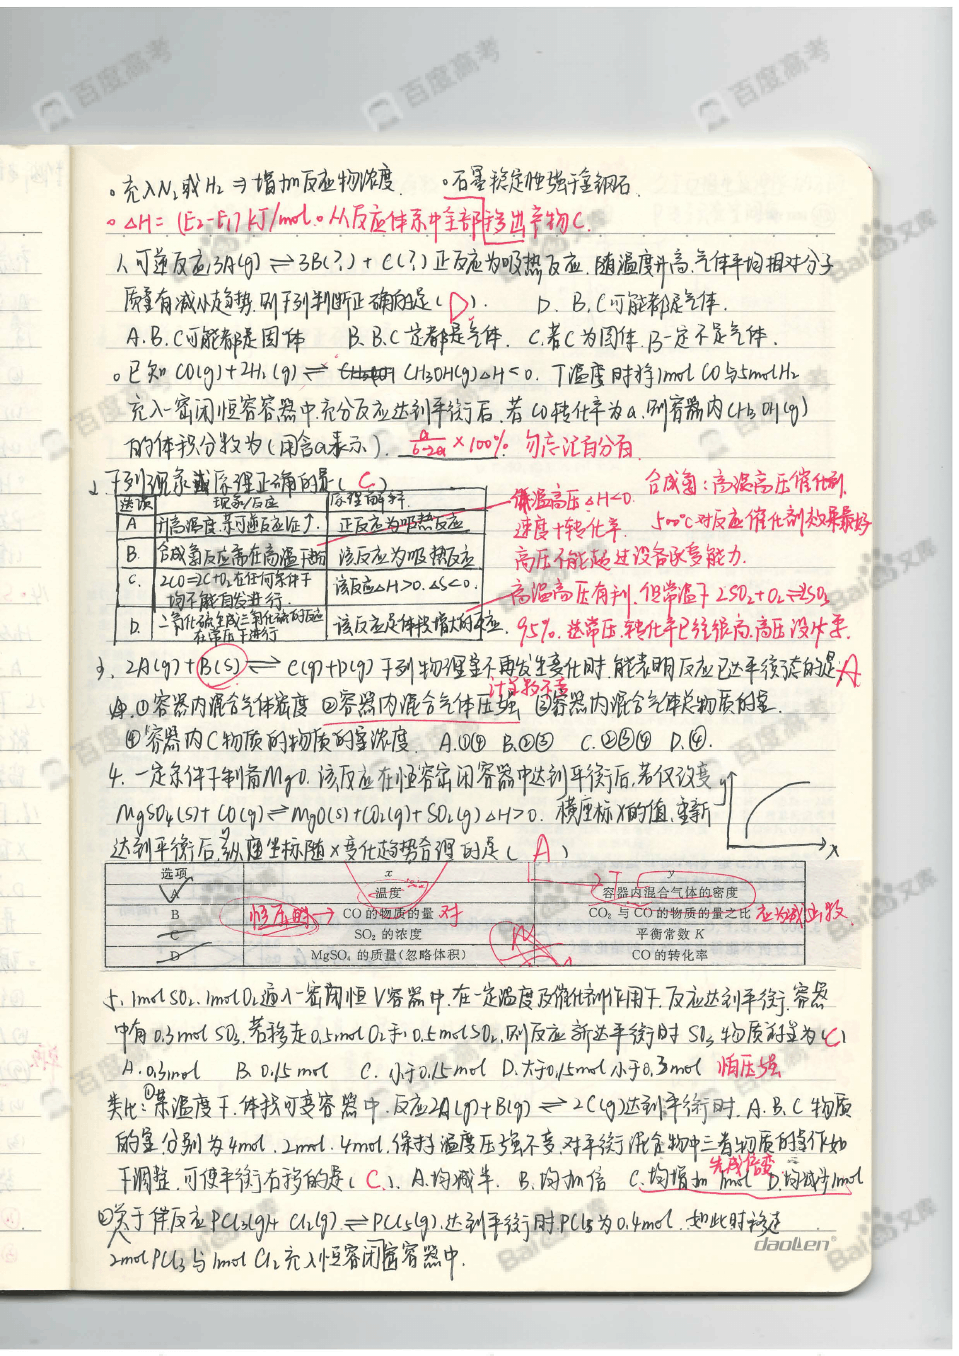 充入N₂或H₂ ⇒ 增加反应物浓度. 石墨稳定性强于金刚石.
△H = (E₂-E₁) kJ/mol. 从反应体系中全部移出产物C.
1. 可逆反应3A(g) ⇌ 3B(?) + C(?) 正反应为吸热反应, 随温度升高, 气体平均相对分子
质量有减小趋势, 则下列判断正确的是( D ). D. B, C可能都是气体.
A. B, C可能都是固体 B. B, C一定都是气体. C. 若C为固体, B一定不是气体.
已知 CO(g)+2H₂(g) ⇌ CH₃OH(g) △H<0. T温度时将1mol CO与5molH₂
充入一密闭恒容容器中, 充分反应达到平衡后, 若CO转化率为a, 则容器内CH₃OH(g)
的体积分数为(用含a表示) a/(6-2a) ×100% 勿忘记百分百
2. 下列现象或原理正确的是( C )
选项 现象/反应 原理解释
A 升高温度, 某可逆反应K↑. 正反应为吸热反应
B. 合成氨反应需在高温下进行 该反应为吸热反应
C. 2CO=2C+O₂在任何条件下均不能自发进行. 该反应△H>0. △S<0.
D. 二氧化硫生成三氧化硫的反应在常压下进行 该反应是体积增大的反应.
低温高压 △H<0. 合成氨: 高温高压催化剂,
速度+转化率 500℃对反应催化剂效果最好
高压不能超过设备承受能力.
高温高压有利, 但常温下 2SO₂+O₂⇌2SO₃
95%. 选常压, 转化率已经很高, 高压没必要.
3. 2A(g)+B(s) ⇌ C(g)+D(g) 下列物理量不再发生变化时, 能表明反应已达平衡态的是 A
计量数不变
①容器内混合气体密度 ②容器内混合气体压强 ③容器内混合气体总物质的量.
④容器内C物质的物质的量浓度. A.①④ B.②③ C.②③④ D.④.
4. 一定条件下制备MgO. 该反应在恒容密闭容器中达到平衡后, 若仅改变
MgSO₄(s)+CO(g) ⇌ MgO(s)+CO₂(g)+SO₂(g) △H>0. 横坐标x的值, 重新
达到平衡后, 纵坐标y随x变化趋势合理的是( A )
y
x
选项 x y
A 温度 容器内混合气体的密度
B 恒压时→ CO的物质的量 对 CO₂与CO的物质的量之比 应为减函数
C SO₂的浓度 平衡常数K
D MgSO₄的质量(忽略体积) CO的转化率
5. 1molSO₂. 1molO₂通入一密闭恒V容器中, 在一定温度及催化剂作用下, 反应达到平衡, 容器
中有0.3mol SO₃, 若移走0.5molO₂和0.5molSO₂, 则反应新达平衡时SO₃物质的量为( C )
A. 0.3mol B. 0.15mol C. 小于0.15mol D. 大于0.15mol小于0.3mol 恒压强
类比: ①某温度下, 体积可变容器中, 反应2A(g)+B(g) ⇌ 2C(g)达到平衡时, A. B. C物质
的量分别为4mol. 2mol. 4mol, 保持温度压强不变, 对平衡混合物中三者物质的量作如
先成倍变
下调整, 可使平衡右移的是( C ). A. 均减半. B. 均加倍 C. 均增加1mol D. 均减少1mol
②关于催反应PCl₃(g)+Cl₂(g) ⇌ PCl₅(g), 达到平衡时PCl₅为0.4mol, 如此时移走
2molPCl₃与1molCl₂充入恒容闭密容器中.
daolen
百度高考
Baidu文库